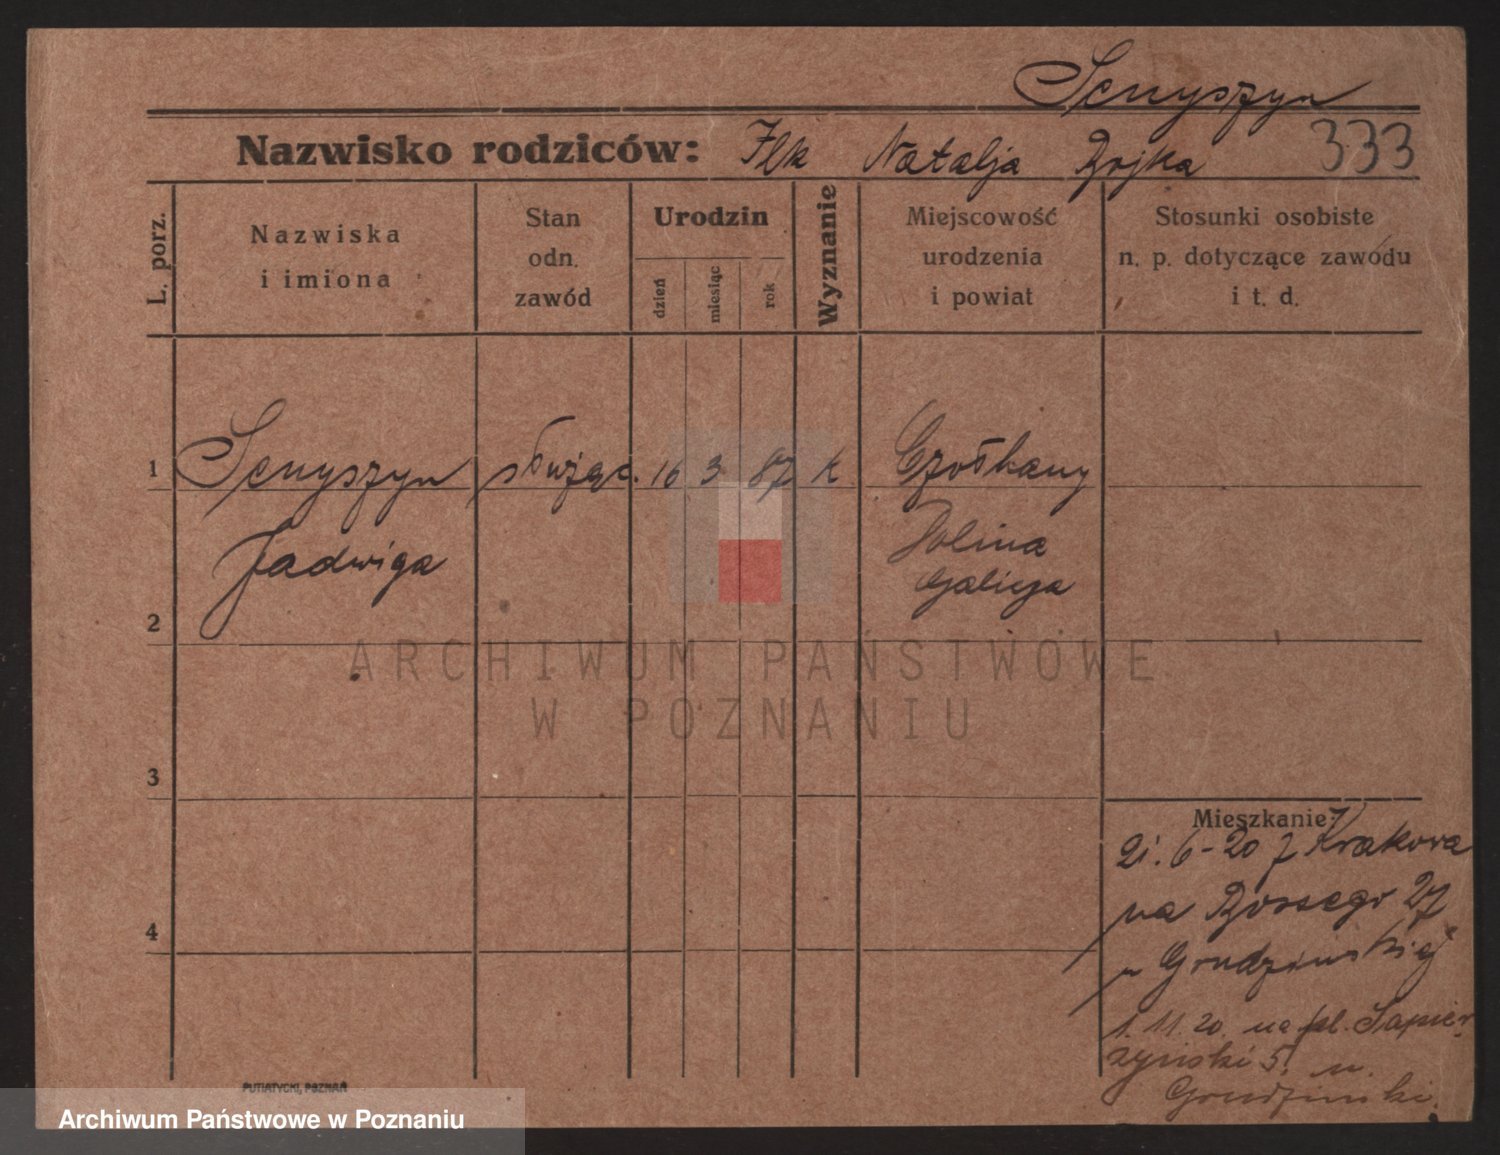 Senyszyn
Nazwisko rodziców: Ilk Natalja Bojka 333
L. porz.
Nazwiska
i imiona
Stan
odn.
zawód
Urodzin
dzień
miesiąc
rok
Wyznanie
Miejscowość
urodzenia
i powiat
Stosunki osobiste
n. p. dotyczące zawodu
i t. d.
1 Senyszyn służąc. 16 3 87 k Czołhany
Jadwiga
Dolina
Galicja
2
3
4
Mieszkanie:
21. 6-20 z Krakowa
na Bossego 27
u Grudzińskiej
1. 11. 20. na pl. Sapier-
zyński 5. u.
Grudzinski.
PUTIATYCKI, POZNAŃ
ARCHIWUM PAŃSTWOWE
W POZNANIU
Archiwum Państwowe w Poznaniu